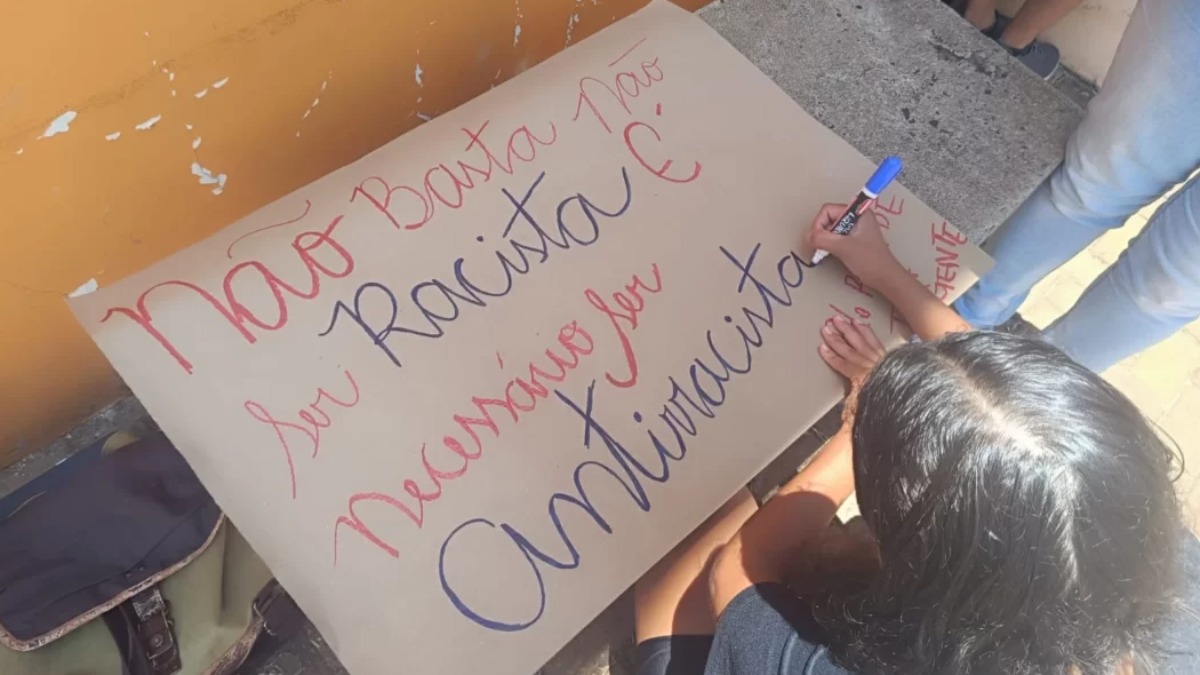 Não Basta Não
Ser Racista É
necessário Ser
antirracista
DE
GENTE